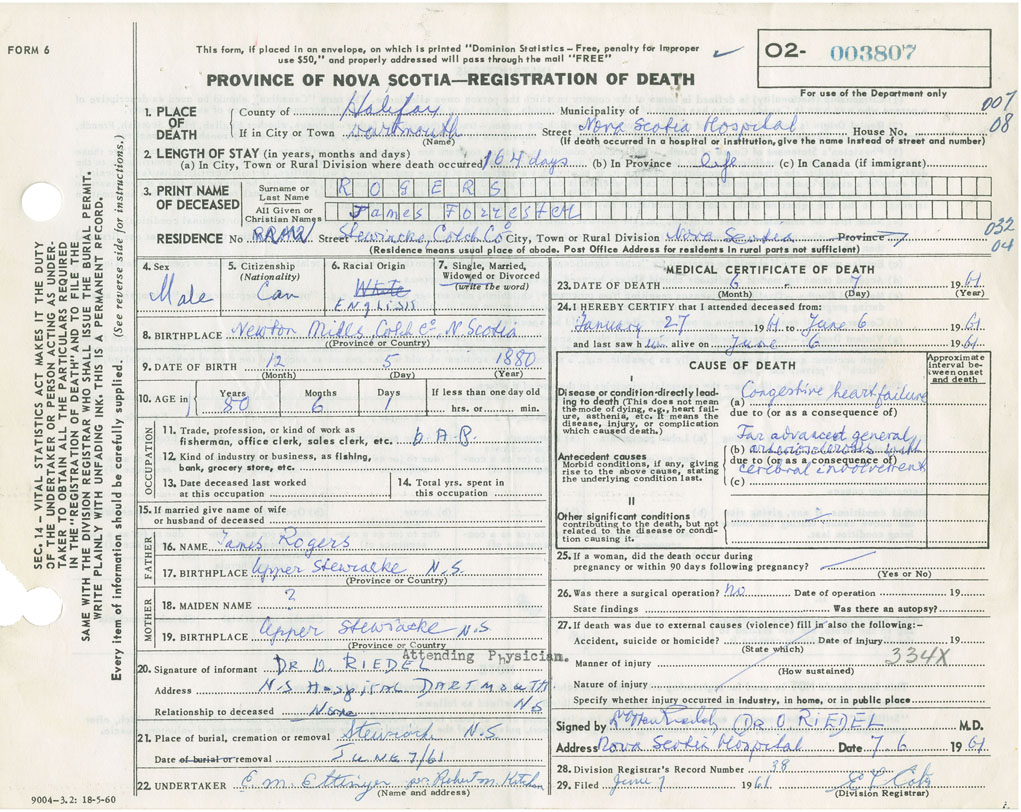 FORM 6
This form, if placed in an envelope, on which is printed "Dominion Statistics – Free, penalty for improper
use $50," and properly addressed will pass through the mail "FREE"
O2- 003807
For use of the Department only
PROVINCE OF NOVA SCOTIA—REGISTRATION OF DEATH
007
08
1. PLACE OF DEATH
County of Halifax Municipality of
If in City or Town Dartmouth Street Nova Scotia Hospital House No.
(Name) (If death occurred in a hospital or institution, give the name instead of street and number)
2. LENGTH OF STAY (in years, months and days)
(a) In City, Town or Rural Division where death occurred 164 days (b) In Province life (c) In Canada (if immigrant)
3. PRINT NAME OF DECEASED
Surname or Last Name ROGERS
All Given or Christian Names James Forrester
RESIDENCE No Street Stewiacke, Colch Co City, Town or Rural Division Nova Scotia Province
032
04
(Residence means usual place of abode. Post Office Address for residents in rural parts not sufficient)
4. Sex Male
5. Citizenship (Nationality) Can
6. Racial Origin White ENGLISH
7. Single, Married, Widowed or Divorced (write the word)
8. BIRTHPLACE Newton Mills, Colch Co, N. Scotia
(Province or Country)
9. DATE OF BIRTH 12 5 1880
(Month) (Day) (Year)
10. AGE in Years 80 Months 6 Days 1 If less than one day old
hrs. or min.
OCCUPATION
11. Trade, profession, or kind of work as
fisherman, office clerk, sales clerk, etc.
12. Kind of industry or business, as fishing,
bank, grocery store, etc.
13. Date deceased last worked
at this occupation
14. Total yrs. spent in
this occupation
15. If married give name of wife
or husband of deceased
FATHER
16. NAME James Rogers
17. BIRTHPLACE Upper Stewiacke N.S.
(Province or Country)
MOTHER
18. MAIDEN NAME ?
19. BIRTHPLACE Upper Stewiacke N.S
(Province or Country
Attending Physician.
20. Signature of informant DR O. RIEDEL
Address N.S Hospital DARTMOUTH
N S
Relationship to deceased None
21. Place of burial, cremation or removal Stewiack N.S
Date of burial or removal JUNE 7/61
22. UNDERTAKER E.M. Ettinger
(Name and address)
9004–3.2: 18-5-60
MEDICAL CERTIFICATE OF DEATH
23. DATE OF DEATH 6 7 1961
(Month) (Day) (Year)
24. I HEREBY CERTIFY that I attended deceased from:
January 27 1961 to June 6 1961
and last saw him alive on June 6 1961
CAUSE OF DEATH
Approximate interval between onset and death
I
Disease or condition directly leading to death (This does not mean the mode of dying, e.g., heart failure, asthenia, etc. It means the disease, injury, or complication which caused death.)
(a) Congestive heart failure
due to (or as a consequence of)
Far advanced general
Antecedent causes
Morbid conditions, if any, giving rise to the above cause, stating the underlying condition last.
(b) arteriosclerosis with
due to (or as a consequence of)
cerebral involvement
(c)
II
Other significant conditions
contributing to the death, but not related to the disease or condition causing it.
25. If a woman, did the death occur during
pregnancy or within 90 days following pregnancy?
(Yes or No)
26. Was there a surgical operation? no Date of operation 19
State findings Was there an autopsy?
27. If death was due to external causes (violence) fill in also the following:–
Accident, suicide or homicide? Date of injury 19
(State which)
334X
Manner of injury
(How sustained)
Nature of injury
Specify whether injury occurred in industry, in home, or in public place
Signed by (DR O RIEDEL M.D.
Address Nova Scotia Hospital Date 7.6 1961
28. Division Registrar's Record Number 38
29. Filed June 7 1961
(Division Registrar)
SEC. 14 – VITAL STATISTICS ACT MAKES IT THE DUTY
OF THE UNDERTAKER OR PERSON ACTING AS UNDER-
TAKER TO OBTAIN ALL THE PARTICULARS REQUIRED
IN THE "REGISTRATION OF DEATH" AND TO FILE THE
SAME WITH THE DIVISION REGISTRAR WHO SHALL ISSUE THE BURIAL PERMIT.
WRITE PLAINLY WITH UNFADING INK. THIS IS A PERMANENT RECORD.
Every item of information should be carefully supplied. (See reverse side for instructions.)